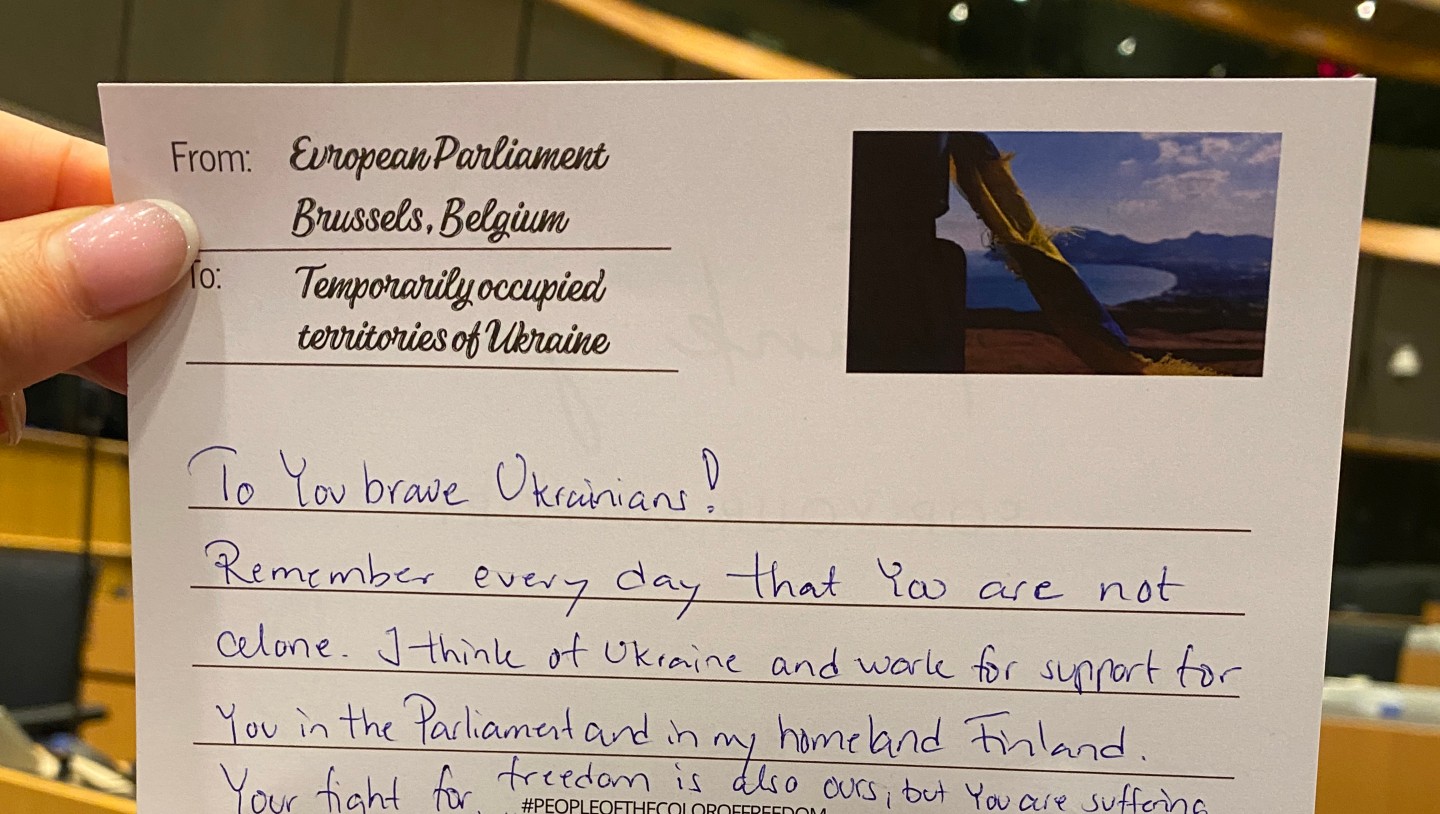 From: European Parliament
Brussels, Belgium
To: Temporarily occupied
territories of Ukraine
To You brave Ukrainians!
Remember every day that You are not
alone. I think of Ukraine and work for support for
You in the Parliament and in my homeland Finland.
Your fight for freedom is also ours, but You are suffering
#PEOPLEOFTHECOLOROFFREEDOM